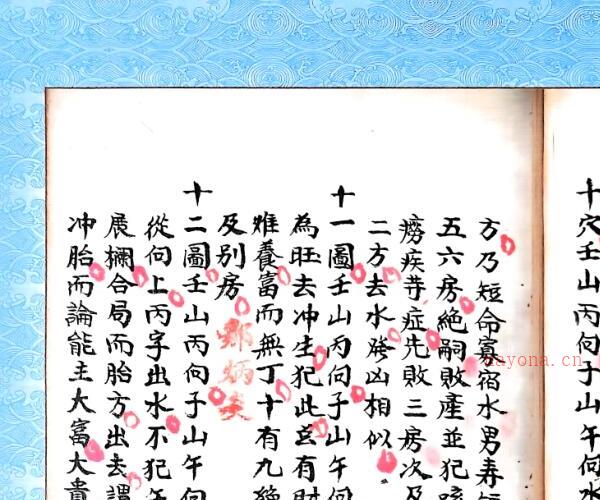 十穴壬山丙向子山午向水
方乃短命寡宿水男壽
五六房絕嗣敗產並犯咳
癆疾等症先敗三房次及
二方去水發凶相似
十一圖壬山丙向子山午向
為旺去冲生犯此忌有財
难養富而無丁十有九絕
及别房
十二圖壬山丙向子山午向
從向上丙字出水不犯午
展欄合局而胎方出去謂
冲胎而論能主大富大貴
鄭炳炎
nayona.cn